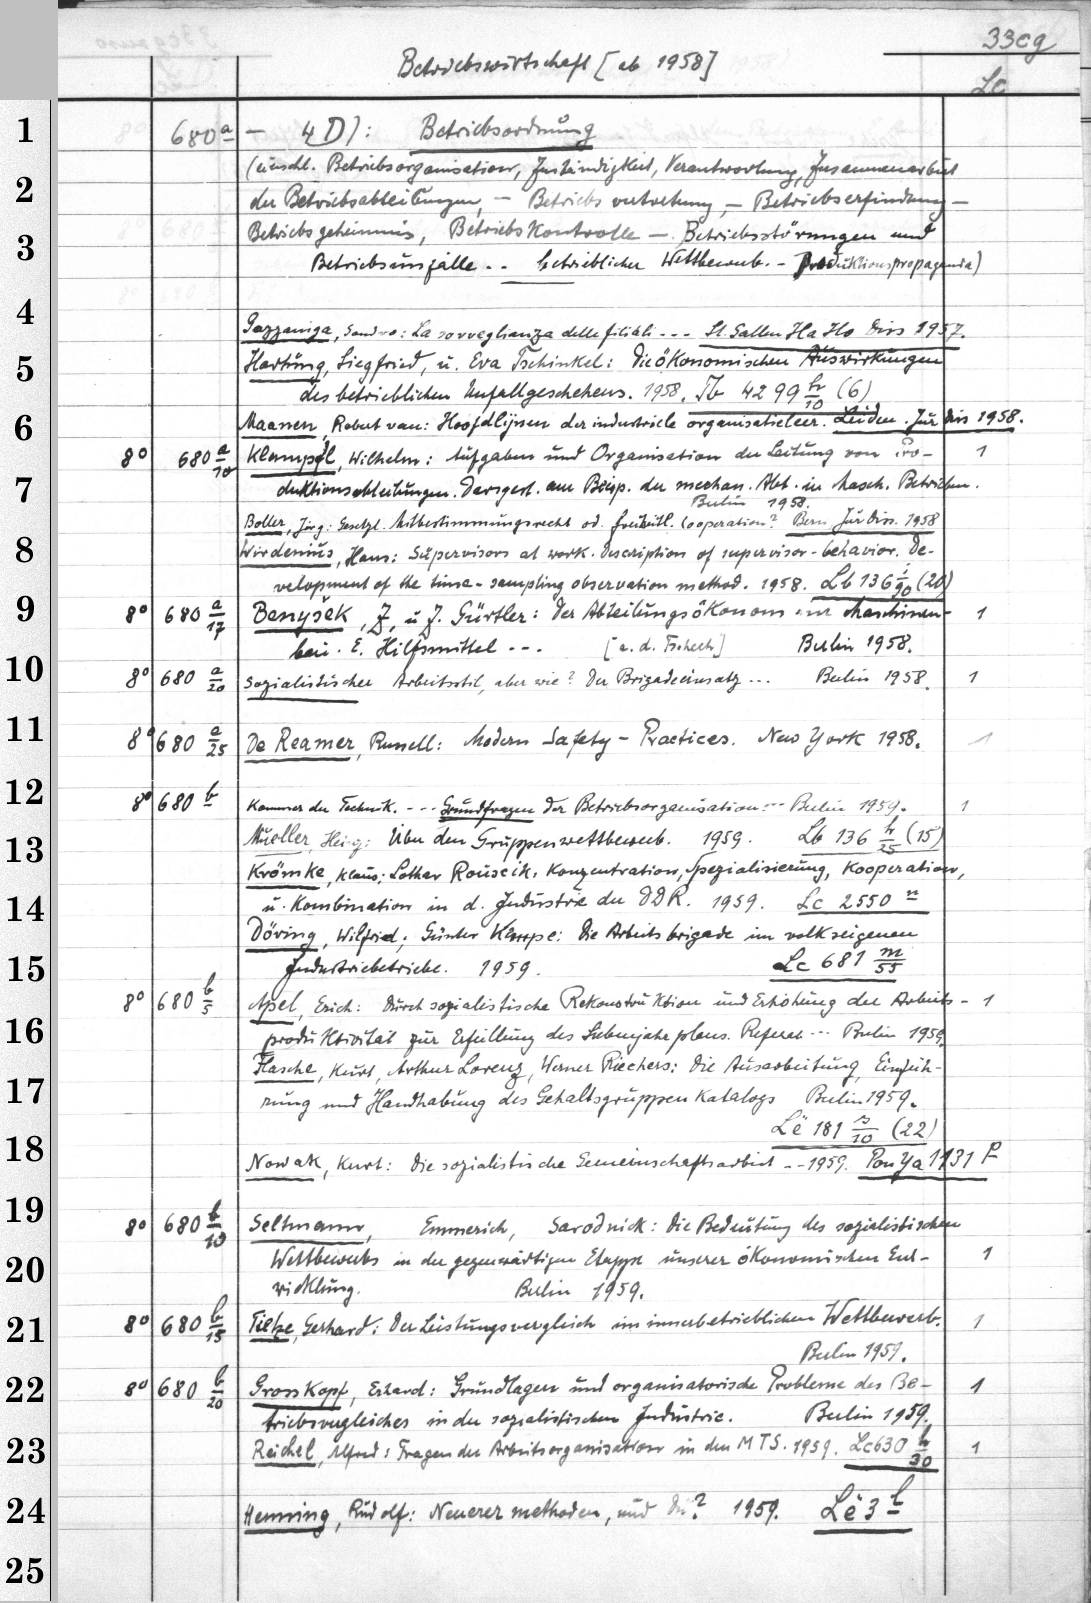 33cg
Betriebswirtschaft [ab 1958]
Lc
1 680 a — 4 D): Betriebsordnung
(einschl. Betriebsorganisation, Zuständigkeit, Verantwortung, Zusammenarbeit
2 der Betriebsabteilungen, — Betriebsvertretung, — Betriebserfindung —
Betriebsgeheimnis, Betriebskontrolle — Betriebsstörungen und
3 Betriebsunfälle -- betrieblicher Wettbewerb. - Produktionspropaganda)
4 Gazzaniga, Sandro: La sorveglianza delle filiali --- St. Gallen HaHo Diss 1957.
5 Hartung, Siegfried, u. Eva Tschinkel: Die ökonomischen Auswirkungen
des betrieblichen Unfallgeschehens. 1958. Tb 4299 h/10 (6)
6 Maanen, Robert van: Hoofdlijnen der industriele organisatieleer. Leiden. Jur Diss 1958.
8° 680 a/10 Klumpfl, Wilhelm: Aufgaben und Organisation der Leitung von Pro- 1
7 duktionsabteilungen. Dargest. am Beisp. der mechan. Abt. in Masch. Betrieben.
Berlin 1958.
Boller, Jörg: Gesetzl. Mitbestimmungsrecht od. freiheitl. Cooperation? Bern Jur Diss. 1958
8 Wirdenius, Hans: Supervisors at work. Description of supervisor-behavior. De-
velopment of the time-sampling observation method. 1958. Lb 136 i/90 (20)
9 8° 680 a/17 Benyšek, Z, u. J. Gürtler: Der Abteilungsökonom im Maschinen- 1
bau. E. Hilfsmittel --- [a. d. Tschech] Berlin 1958.
10 8° 680 a/20 Sozialistischer Arbeitsstil, aber wie? Der Brigadeeinsatz ... Berlin 1958. 1
11 8° 680 a/25 De Reamer, Russell: Modern Safety-Practices. New York 1958. 1
12 8° 680 b Kammer der Technik. --- Grundfragen der Betriebsorganisation --- Berlin 1959. 1
13 Mueller, Heinz: Über den Gruppenwettbewerb. 1959. Lb 136 h/25 (15)
Krömke, Klaus; Lothar Rouscik. Konzentration, Spezialisierung, Kooperation,
14 u. Kombination in d. Industrie der DDR. 1959. Lc 2550 n
Döring, Wilfried; Günter Kämpe: Die Arbeitsbrigade im volkseigenen
15 Industriebetriebe. 1959. Lc 681 m/55
8° 680 b/5 Apel, Erich: Durch sozialistische Rekonstruktion und Erhöhung der Arbeits- 1
16 produktivität zur Erfüllung des Siebenjahrplans. Referat --- Berlin 1959.
Flasche, Kurt, Arthur Lorenz, Werner Riechers: Die Ausarbeitung, Einfüh-
17 rung und Handhabung des Gehaltsgruppenkatalogs Berlin 1959.
Lë 181 s/10 (22)
18 Nowak, Kurt: Die sozialistische Gemeinschaftsarbeit -- 1959. Pon Ya 1131 F
19 8° 680 b/10 Seltmann, Emmerich, Sarodnick: Die Bedeutung des sozialistischen
20 Wettbewerbs in der gegenwärtigen Etappe unserer ökonomischen Ent- 1
wicklung. Berlin 1959.
21 8° 680 b/15 Tietze, Gerhard: Der Leistungsvergleich im innerbetrieblichen Wettbewerb. 1
Berlin 1959.
22 8° 680 b/20 Grosskopf, Erhard: Grundlagen und organisatorische Probleme des Be- 1
triebsvergleiches in der sozialistischen Industrie. Berlin 1959.
23 Reichel, Alfred: Fragen der Arbeitsorganisation in den MTS. 1959. Lc 630 h/30 1
24 Henning, Rudolf: Neuerermethoden, und Du? 1959. Lë 3 l
25